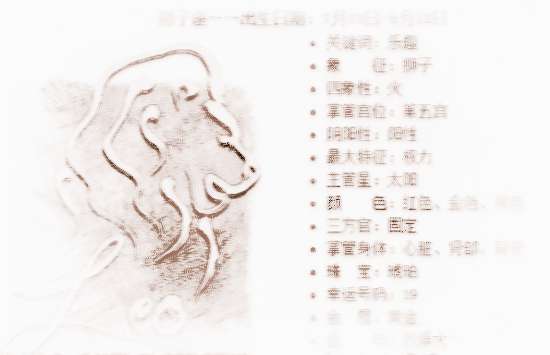 狮子座——出生日期：7月23日-8月22日
关键词：乐趣
象　　征：狮子
四象性：火
掌管宫位：第五宫
阴阳性：阳性
最大特征：权力
主管星：太阳
颜　　色：红色、金色、
三方宫：固定
掌管身体：心脏、背部、
珠　宝：琥珀
幸运号码：19
金　属：黄金